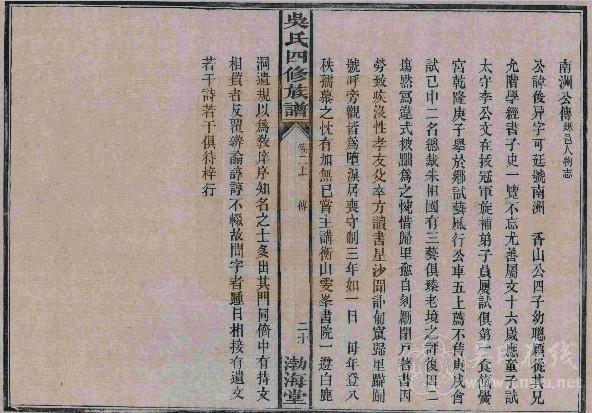 南洲公傳 錄邑人物志
公諱俊昇字可廷號南洲 香山公四子幼聰穎從其兄
允階學經書子史一覽不忘尤善屬文十六歲應童子試
太守李公文在拔冠軍旋補弟子員屢試俱第一食餼黌
宮乾隆庚子舉於鄉試藝風行公車五上薦不售庚戌會
試己中二名總裁朱相國有三藝俱臻老境之評後因二
塲默寫違式被黜爲之惋惜歸里愈自刻勵閉戸著書因
勞致疾沒性孝友父卒方讀書星沙聞訃匍匐歸里躃踊
號呼旁觀者爲墮淚居喪守制三年如一日 母年登八
秩孺慕之忱有加無已嘗主講衡山雯峯書院一遵白鹿
吳氏四修族譜
卷二上 傳
二十
渤海堂
洞遺規以爲敎庠序知名之士多出其門同儕中有持支
相質者反覆辨論諄諄不輟故問字者踵日相接有遺文
若干詩若干俱待梓行
吴氏在线